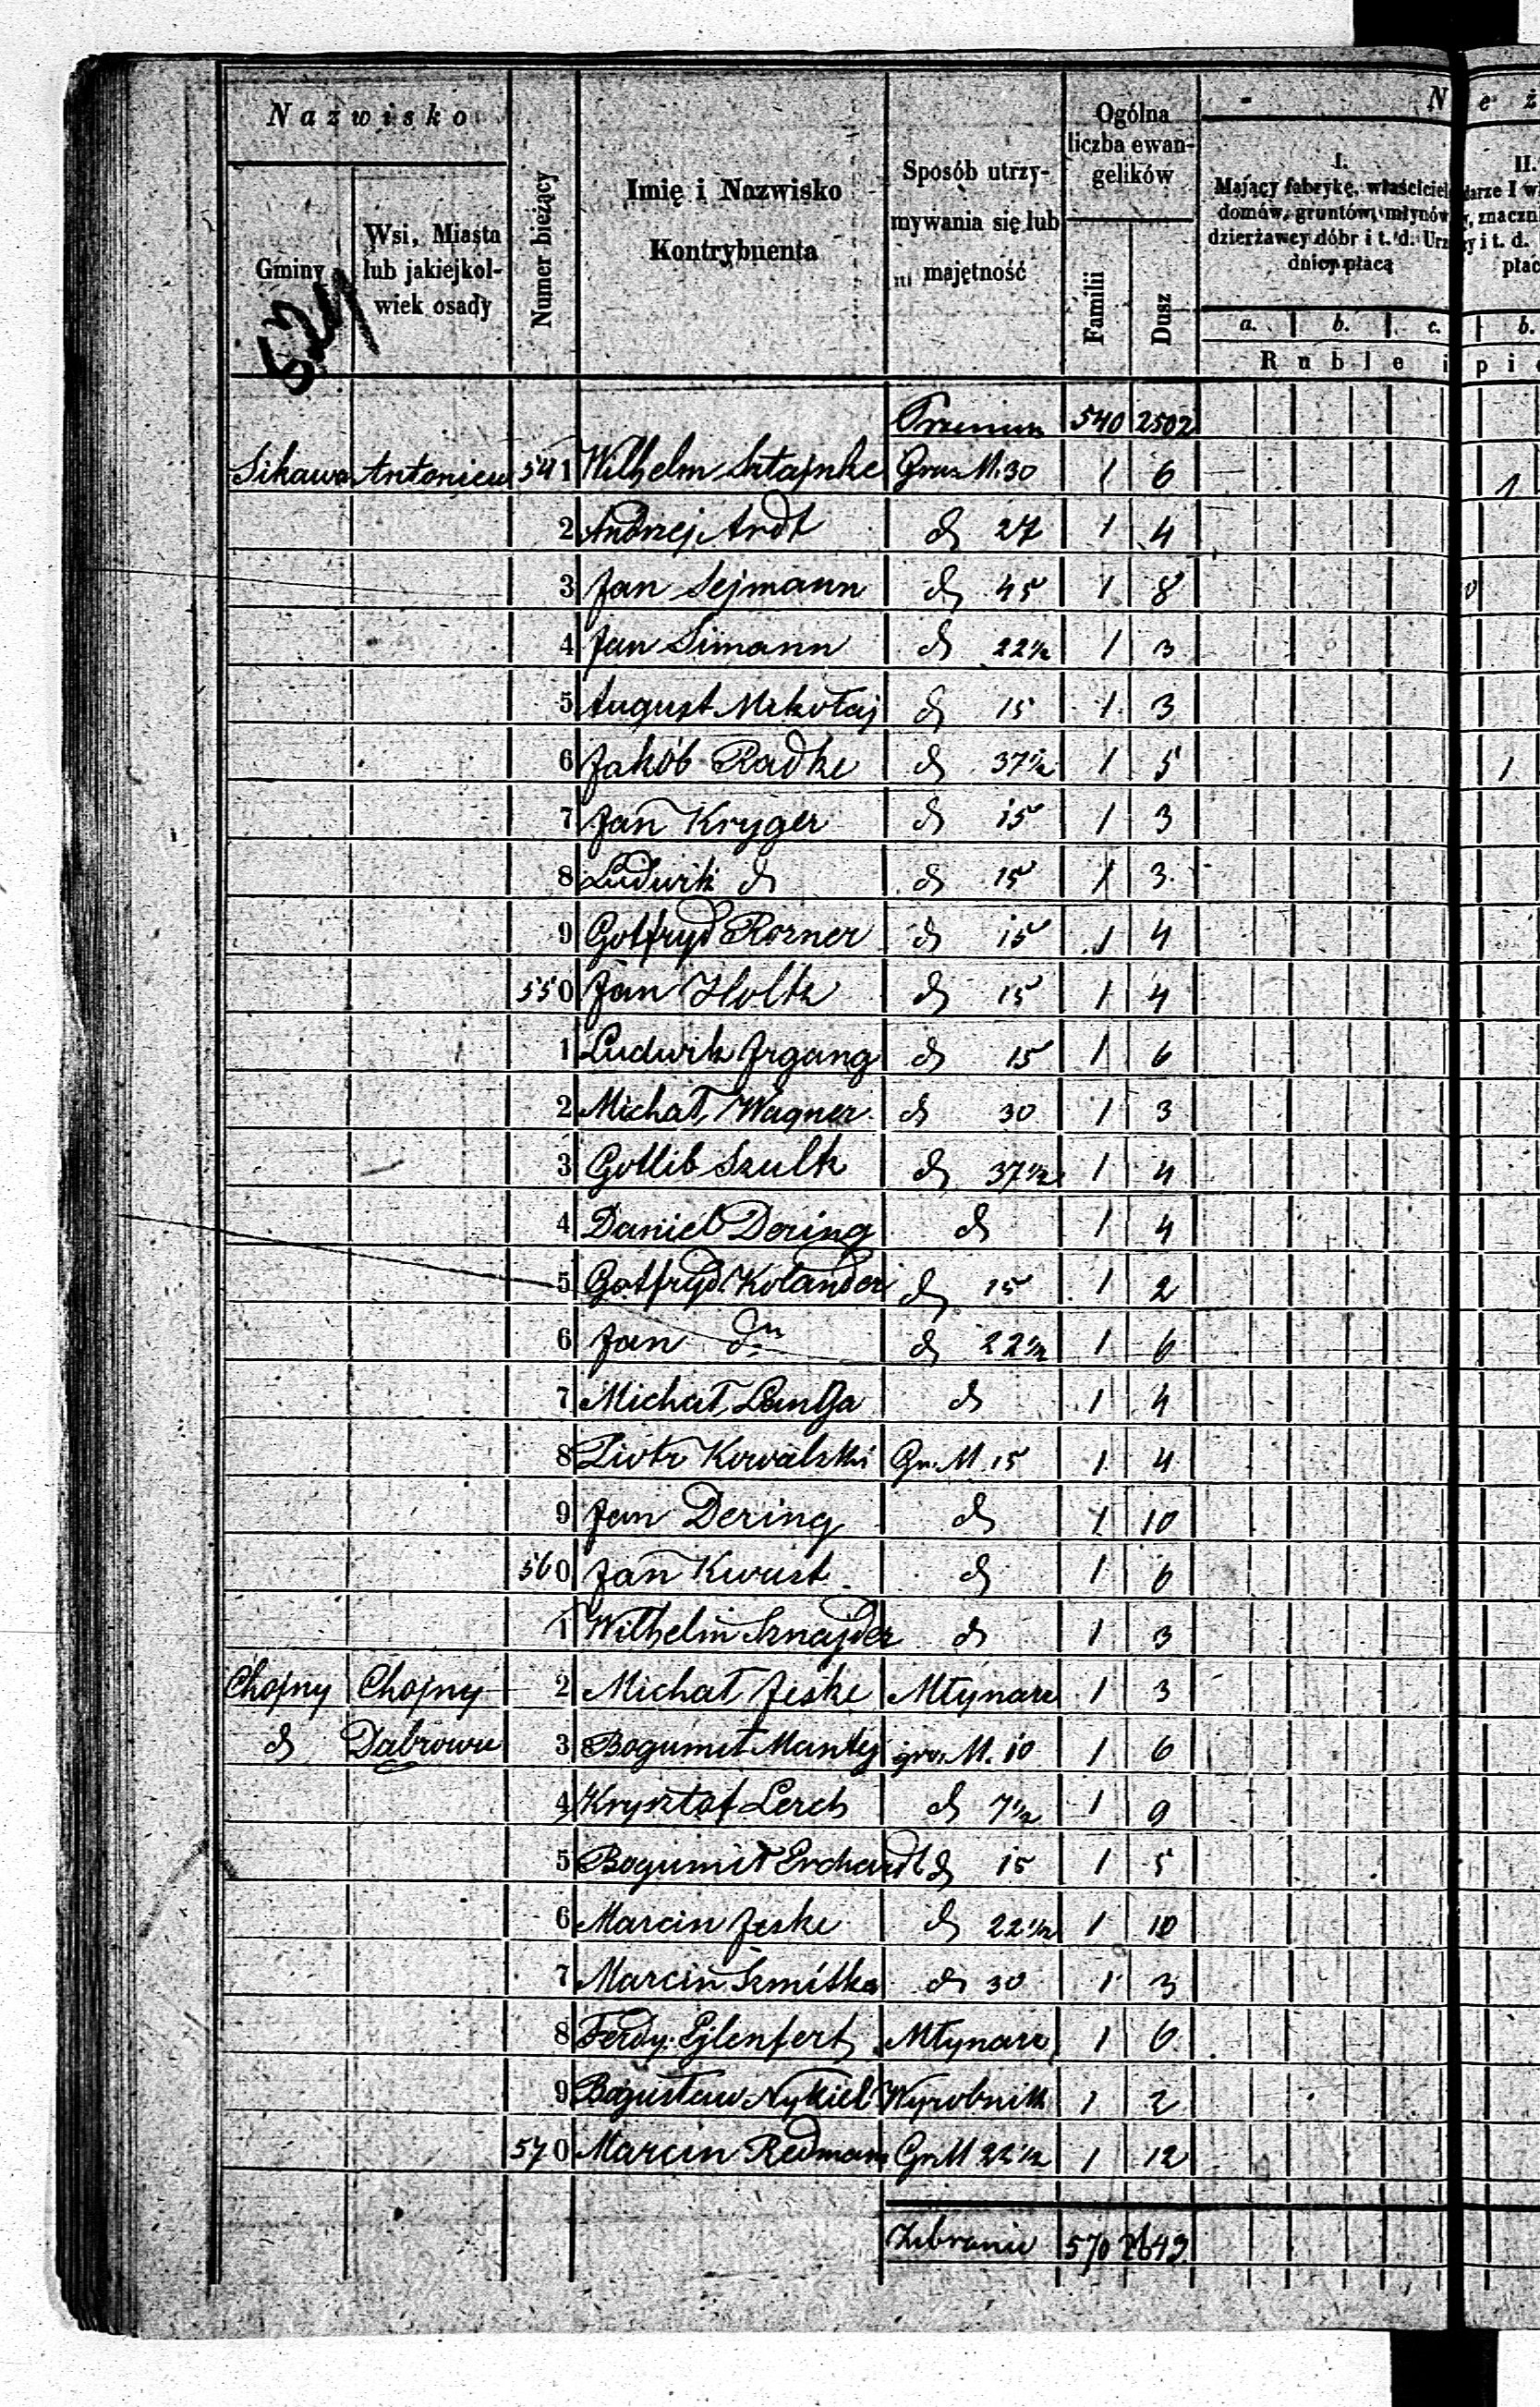 Nazwisko
Gminy
Wsi, Miasta
lub jakiejkol-
wiek osady
Numer bieżący
Imię i Nazwisko
Kontrybuenta
Sposób utrzy-
mywania się lub
majętność
Ogólna
liczba ewan-
gelików
Familii
Dusz
N e ż
I.
Mający fabrykę, właściciel
domów, gruntów, młynów
dzierżawcy dóbr i t. d. Urz
dnicy płacą
II.
darze I w
y, znaczn
y i t. d.
płac
a. b. c. b.
Ruble i pi
540 2502
Sikawa Antoniew 541 Wilhelm Sztajnke Grun M. 30 1 6 1
2 Andrzej Ardt d 27 1 4
3 Jan Sejmann d 45 1 8
4 Jan Simann d 22½ 1 3
5 August Mikołaj d 15 1 3
6 Jakób Radke d 37½ 1 5 1
7 Jan Kryger d 15 1 3
8 Ludwik d d 15 1 3
9 Gotfryd Rozner d 15 1 4
550 Jan Holtz d 15 1 4
1 Ludwik Jrgang d 15 1 6
2 Michał Wagner d 30 1 3
3 Gotlib Szultz d 37½ 1 4
4 Daniel Dering d 1 4
5 Gotfryd Kolander d 15 1 2
6 Jan d d 22½ 1 6
7 Michał d 1 4
8 Piotr Kowalski Gr. M. 15 1 4
9 Jan Dering d 1 10
560 Jan Kwast d 1 6
1 Wilhelm Sznajder d 1 3
Chojny Chojny 2 Michał Jeske Młynarz 1 3
d Dąbrowa 3 Bogumił Mantej gr. M. 10 1 6
4 Krysztof Lerch d 7½ 1 9
5 Bogumił Erchardt d 15 1 5
6 Marcin Jeske d 22½ 1 10
7 Marcin Szmitka d 30 1 3
8 Ferdy. Ejlenfert Młynarz 1 6
9 Bogusław Nykiel Wyrobnik 1 2
570 Marcin Redmann Gr M 22½ 1 12
570 2649